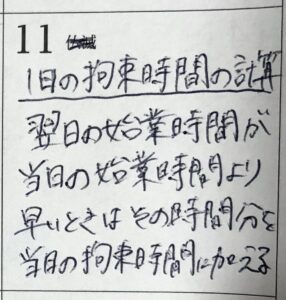 11
1日の拘束時間の計算
翌日の始業時間が
当日の始業時間より
早いときはその時間分を
当日の拘束時間に加える